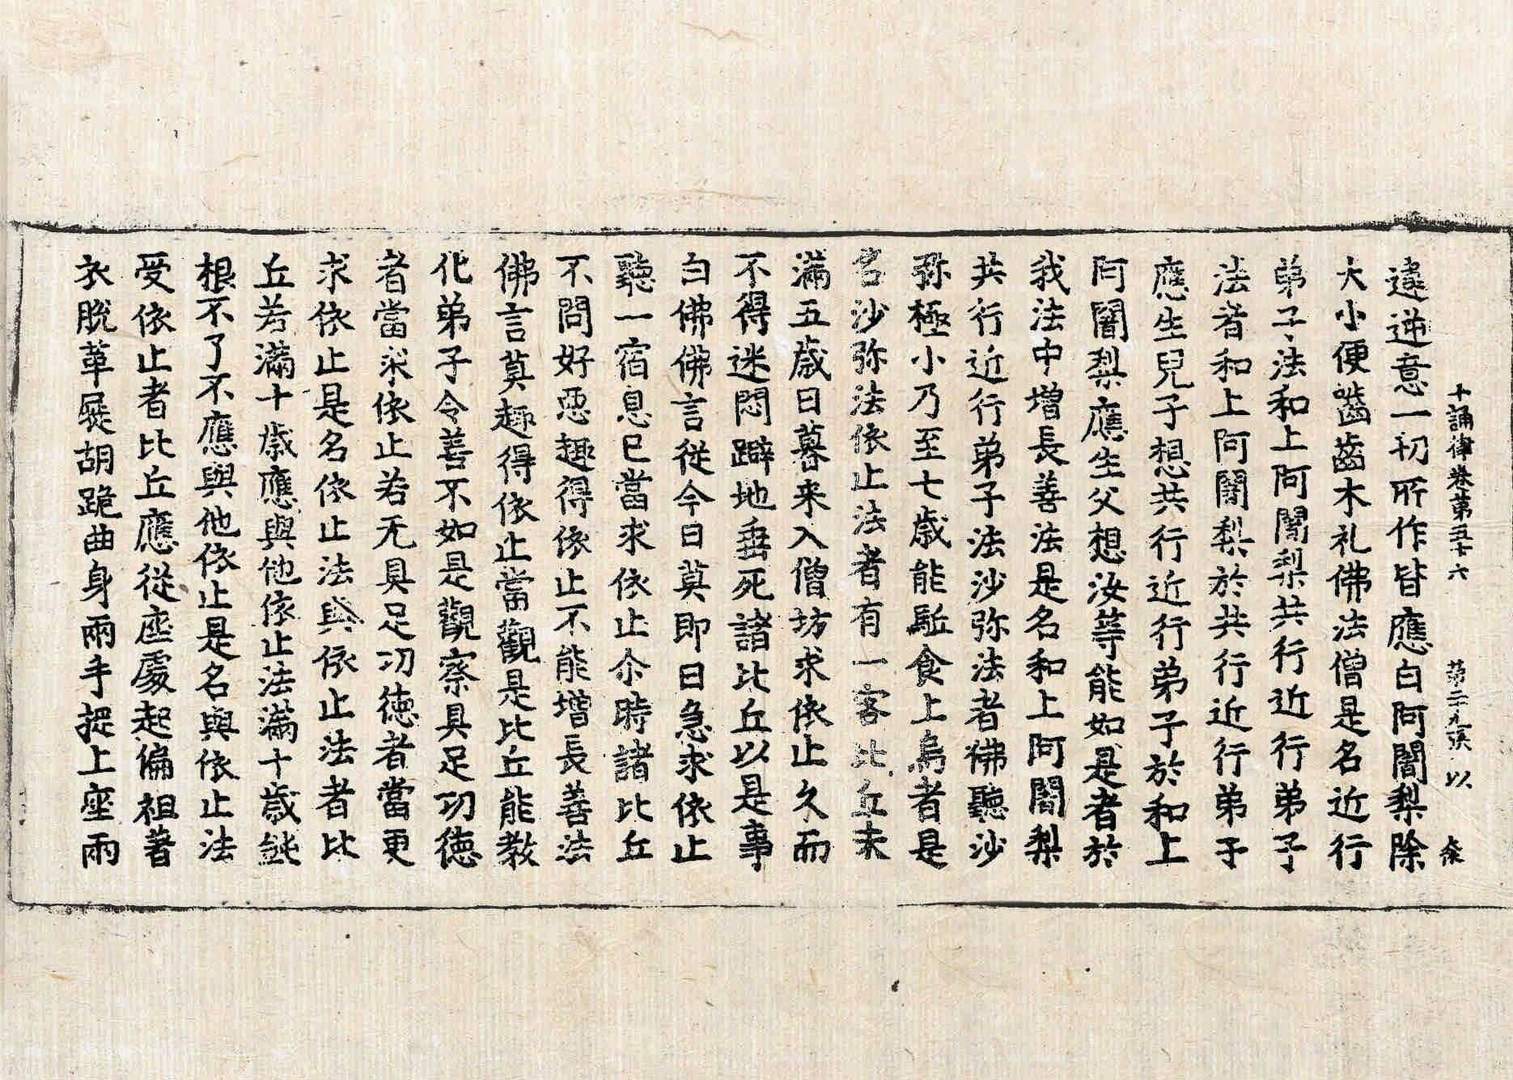 十誦律卷第五十六 第二十九張 以
違逆意一切所作皆應白阿闍梨除
大小便嚙齒木礼佛法僧是名近行
弟子法和上阿闍梨共行近行弟子
法者和上阿闍梨於共行近行弟子
應生兒子想共行近行弟子於和上
阿闍梨應生父想汝等能如是者於
我法中增長善法是名和上阿闍梨
共行近行弟子法沙弥法者佛聽沙
弥極小乃至七歲能駈食上烏者是
名沙弥法依止法者有一客比丘未
滿五歲日暮來入僧坊求依止久而
不得迷悶躃地垂死諸比丘以是事
白佛佛言從今日莫即日急求依止
聽一宿息已當求依止尒時諸比丘
不問好惡趣得依止不能增長善法
佛言莫趣得依止當觀是比丘能教
化弟子令善不如是觀察具足功德
者當求依止若无具足功德者當更
求依止是名依止法與依止法者比
丘若滿十歲應與他依止法滿十歲鈍
根不了不應與他依止是名與依止法
受依止者比丘應從座處起偏袒著
衣脫革屣胡跪曲身兩手捉上座兩